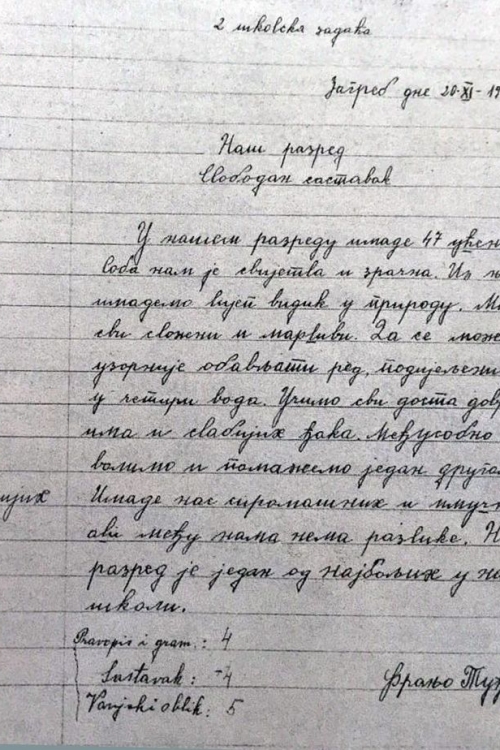 2 школска задаћа
Загреб дне 20·XI-19
Наш разред
Слободан саставак
У нашем разреду имаде 47 учен
Соба нам је свијетла и зрачна. Из
имадемо лијеп видик у природу.
сви сложени и марљиви. Да се мож
узорније обављати ред, подијељени
у четири вода. Учимо сви доста
има и слабијих ђака. Међусобно
волимо и помажемо један
Имаде нас сиромашних и имућн
али међу нама нема разлике.
разред је један од најбољих у
школи.
Pravopis i gram.: 4
Sastavak: -4
Vanjski oblik: 5
Фрањо Туђ
ијих